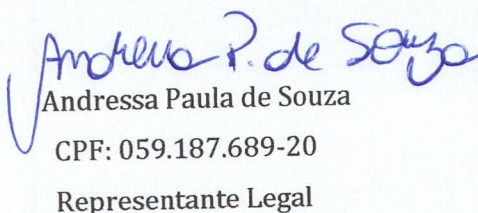 Andressa P. de Souza
Andressa Paula de Souza
CPF: 059.187.689-20
Representante Legal